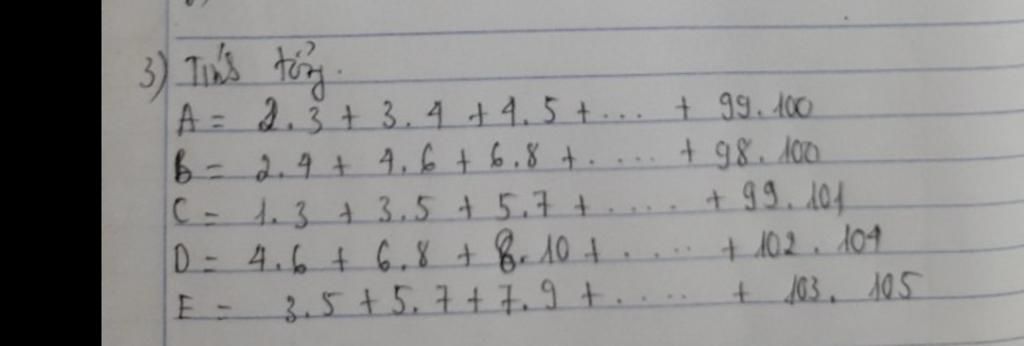 3) Tính tổng.
A = 2.3 + 3.4 + 4.5 + ... + 99.100
B = 2.4 + 4.6 + 6.8 + .... + 98.100
C = 1.3 + 3.5 + 5.7 + ..... + 99.101
D = 4.6 + 6.8 + 8.10 + ..... + 102.104
E = 3.5 + 5.7 + 7.9 + ..... + 103.105